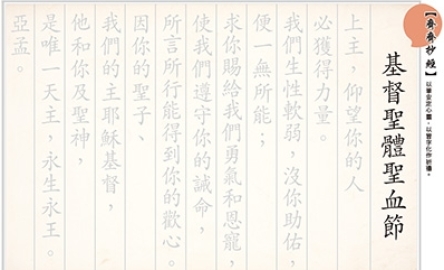 【齊齊抄經】
以筆安定心靈，以習字化作祈禱。
基督聖體聖血節
上主，仰望你的人
必獲得力量。
我們生性軟弱，沒你助佑，
便一無所能；
求你賜給我們勇氣和恩寵，
使我們遵守你的誡命，
所言所行能得到你的歡心。
因你的聖子、
我們的主耶穌基督，
他和你及聖神，
是唯一天主，永生永王。
亞孟。